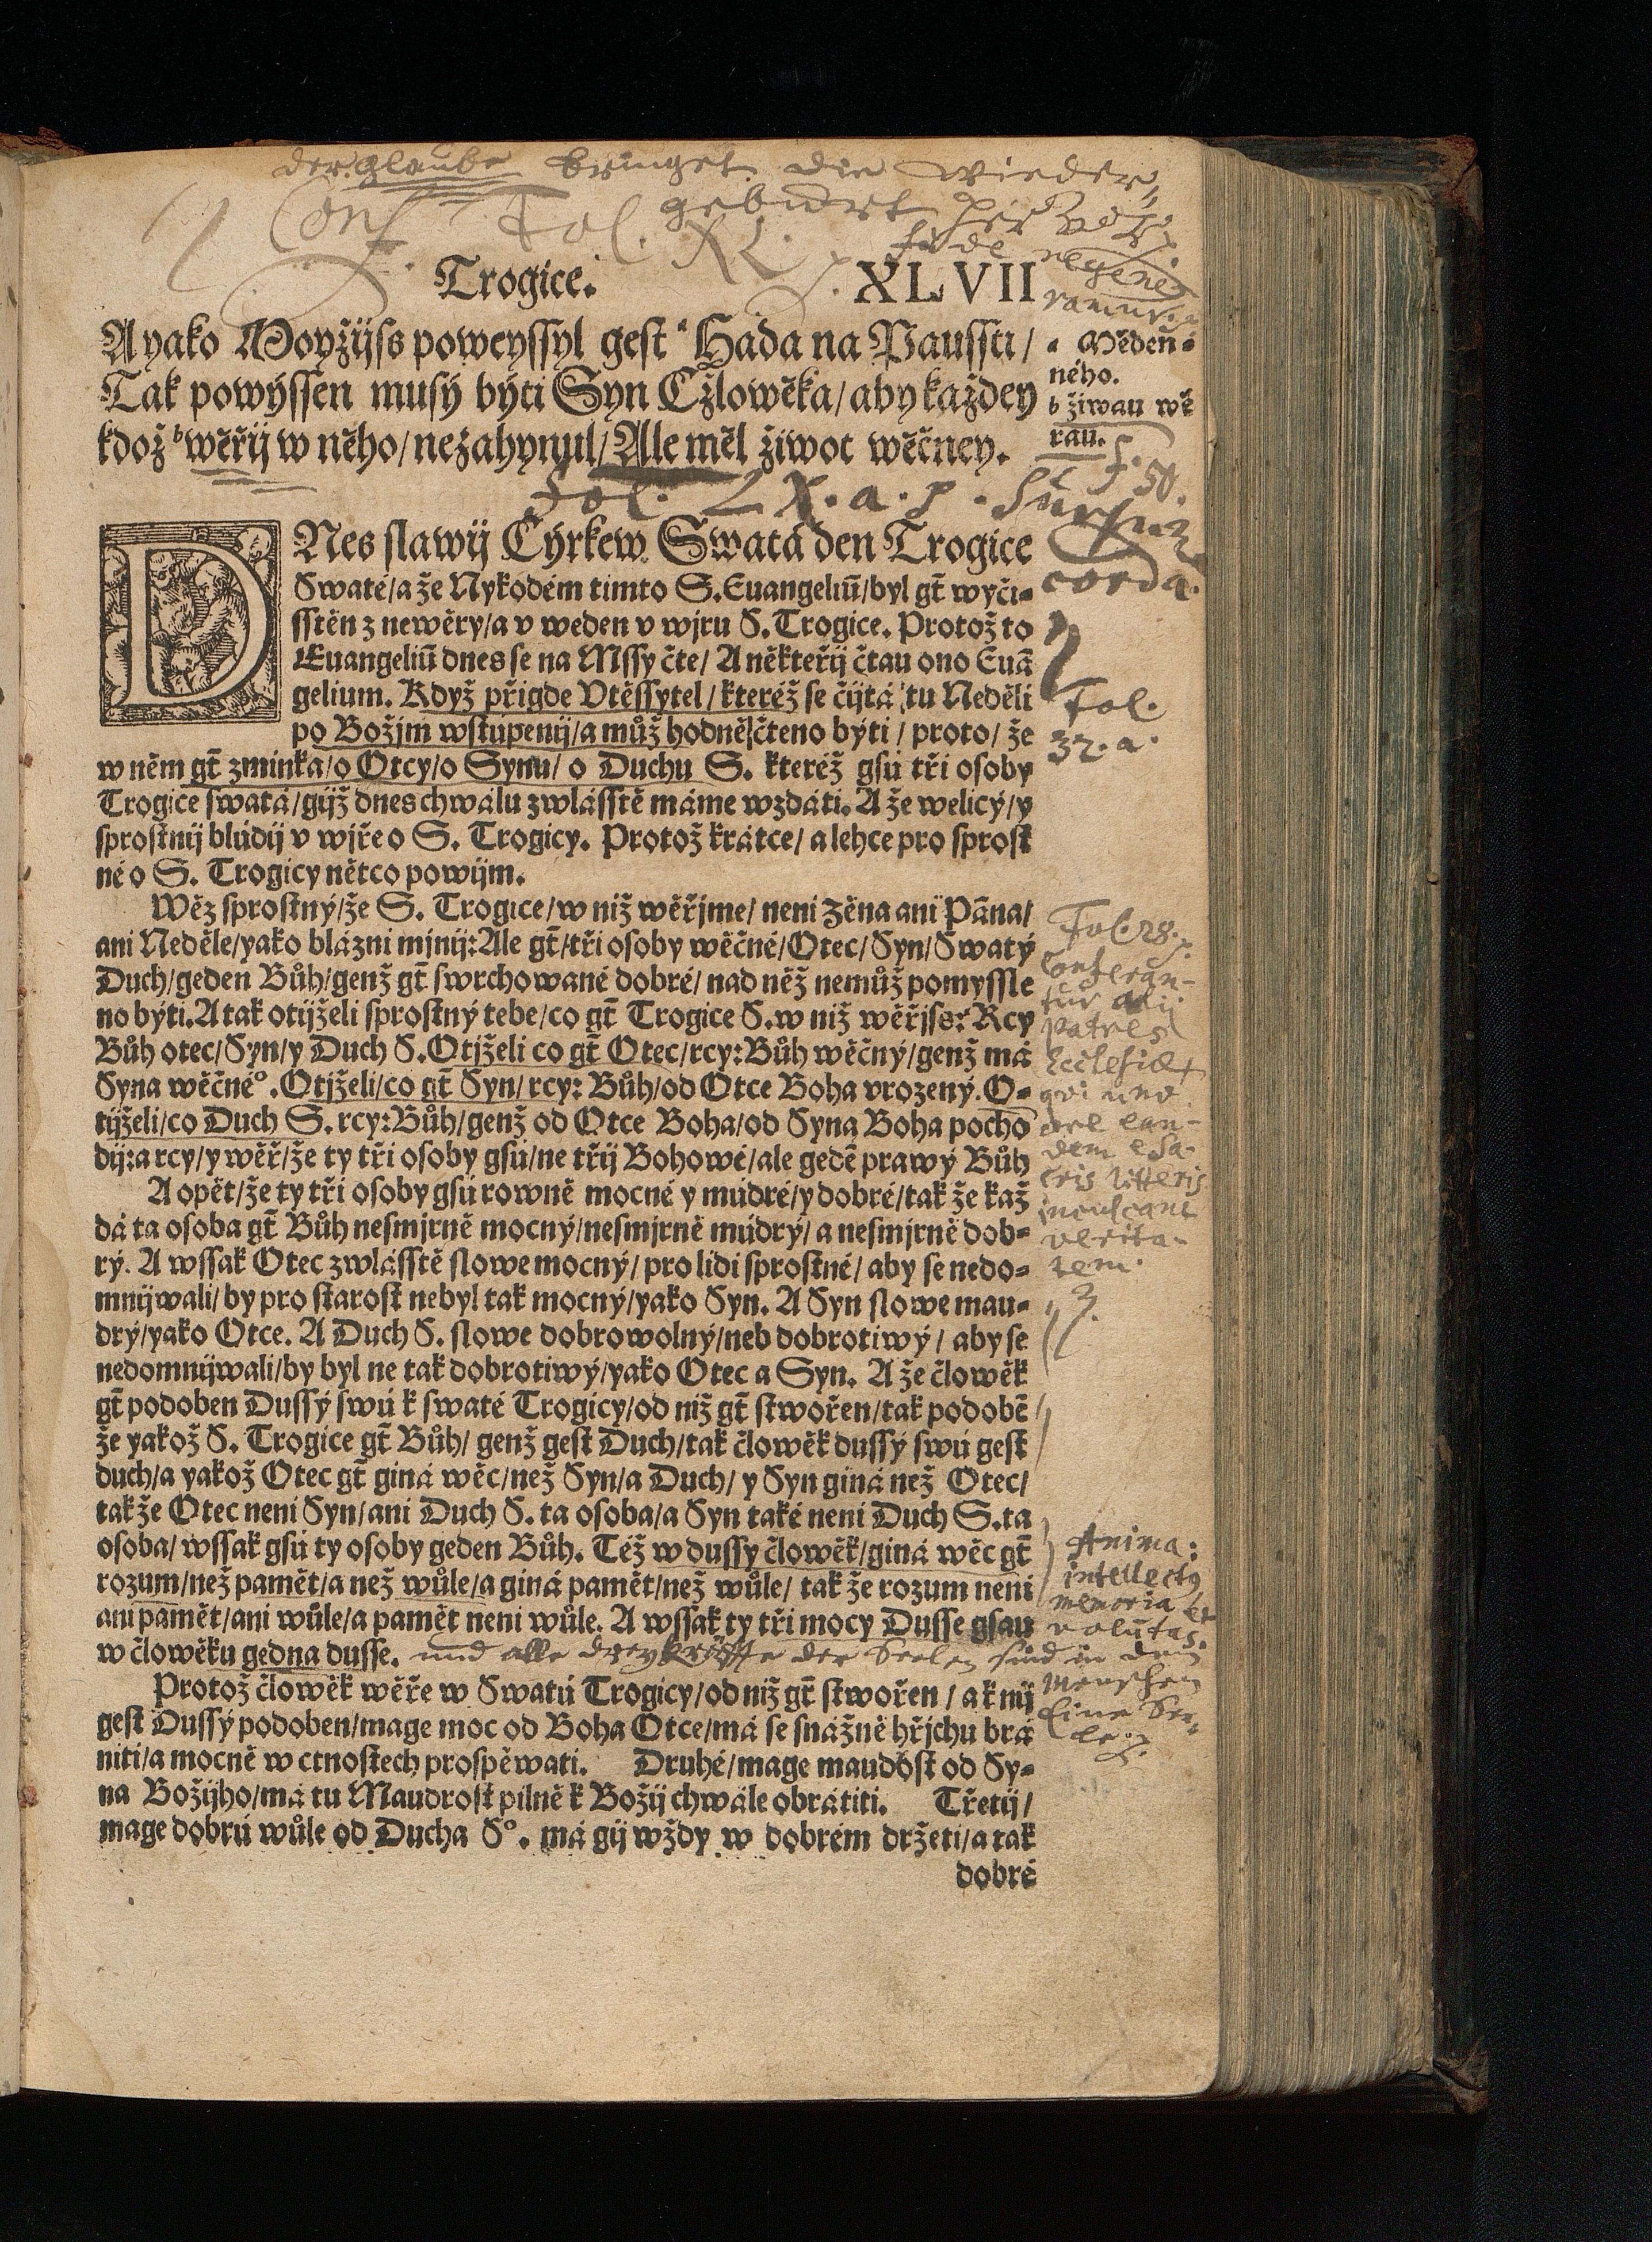 der glaube bringet die wieder⸗
geburt per
Conf. Fol. XL.
fide regene
ramur.
Trogice. XLVII
A yako Moyžijss poweyssyl gest ᵃ Hada na Paussti/
Tak powýssen musý býti Syn Cžlowěka/ aby každey
kdož ᵇ wěřij w něho/ nezahynul/ Ale měl žiwot wěčney.
a Měděn⸗
ného.
b žiwau wě
rau.
f. 50.
Fol. LX. a. p. Sursum
corda.
DNes slawij Cýrkew Swatá den Trogice
Swaté/ a že Nykodém timto S. Euangeliū/ byl gt̄ wyči⸗
sstěn z newěry/ a v weden v wjru S. Trogice. Protož to
Euangeliū dnes se na Mssy čte/ A někteřij čtau ono Euā
gelium. Když přigde Vtěssytel/ kteréž se čijtá tu Neděli
po Božjm wstúpenij/ a můž hodně čteno býti/ proto/ že
w něm gt̄ zminka/ o Otcy/ o Synu/ o Duchu S. kteréž gsú tři osoby
Trogice swatá/ gijž dnes chwálu zwlásstě máme wzdáti. A že welicý/ y
sprostnij blúdij v wjře o S. Trogicy. Protož krátce/ a lehce pro sprost
né o S. Trogicy nětco powijm.
Fol.
32. a.
Wěz sprostný/ že S. Trogice/ w niž wěřjme/ neni žěna ani Pāna/
ani Neděle/ yako blázni mjnij: Ale gt̄/ tři osoby wěčné/ Otec/ Syn/ Swatý
Duch/ geden Bůh/ genž gt̄ swrchowané dobré/ nad něž nemůž pomyssle
no býti. A tak otijželi sprostný tebe/ co gt̄ Trogice S. w niž wěřjss: Rcy
Bůh otec/ Syn/ y Duch S. Otjželi co gt̄ Otec/ rcy: Bůh wěčný/ genž má
Syna wěčnéº. Otjželi/ co gt̄ Syn/ rcy: Bůh/ od Otce Boha vrozený. O⸗
tijželi/ co Duch S. rcy: Bůh/ genž od Otce Boha/ od Syna Boha pocho
dij: a rcy/ y wěř/ že ty tři osoby gsú/ ne třij Bohowé/ ale gedē prawý Bůh
Fol. 28.
Conferan⸗
tur alij
patres
Ecclesiae
qui uno
ore ean⸗
dem e sa⸗
cris litteris
inculcant
verita⸗
tem.
A opět/ že ty tři osoby gsú rowně mocné y múdré/ y dobré/ tak že kaž
dá ta osoba gt̄ Bůh nesmjrně mocný/ nesmjrně múdrý/ a nesmjrně dob⸗
rý. A wssak Otec zwlásstě slowe mocný/ pro lidi sprostné/ aby se nedo⸗
mnijwali/ by pro starost nebyl tak mocný/ yako Syn. A Syn slowe mau⸗
drý/ yako Otce. A Duch S. slowe dobrowolný/ neb dobrotiwý/ aby se
nedomnijwali/ by byl ne tak dobrotiwý/ yako Otec a Syn. A že člowěk
gt̄ podoben Dussý swú k swaté Trogicy/ od niž gt̄ stwořen/ tak podobē
že yakož S. Trogice gt̄ Bůh/ genž gest Duch/ tak člowěk dussý swú gest
duch/ a yakož Otec gt̄ giná wěc/ než Syn/ a Duch/ y Syn giná než Otec/
tak že Otec neni Syn/ ani Duch S. ta osoba/ a Syn také neni Duch S. ta
osoba/ wssak gsú ty osoby geden Bůh. Též w dussy člowěk/ giná wěc gt̄
rozum/ než pamět/ a než wůle/ a giná pamět/ než wůle/ tak že rozum neni
ani pamět/ ani wůle/ a pamět neni wůle. A wssak ty tři mocy Dusse gsau
w člowěku gedna dusse. und alle drey kräffte der Seelen sind in dem
Menschen
Eine See⸗
le.
Anima:
intellectꝰ
memoria et
volūtas.
Protož člowěk wěře w Swatú Trogicy/ od niž gt̄ stwořen/ a k nij
gest Dussý podoben/ mage moc od Boha Otce/ má se snážně hřjchu brá
niti/ a mocně w ctnostech prospěwati. Druhé/ mage maudost od Sy⸗
na Božijho/ má tu Maudrost pilně k Božij chwále obrátiti. Třetij/
mage dobrú wůle od Ducha Sº. má gij wždy w dobrém držeti/ a tak
dobré